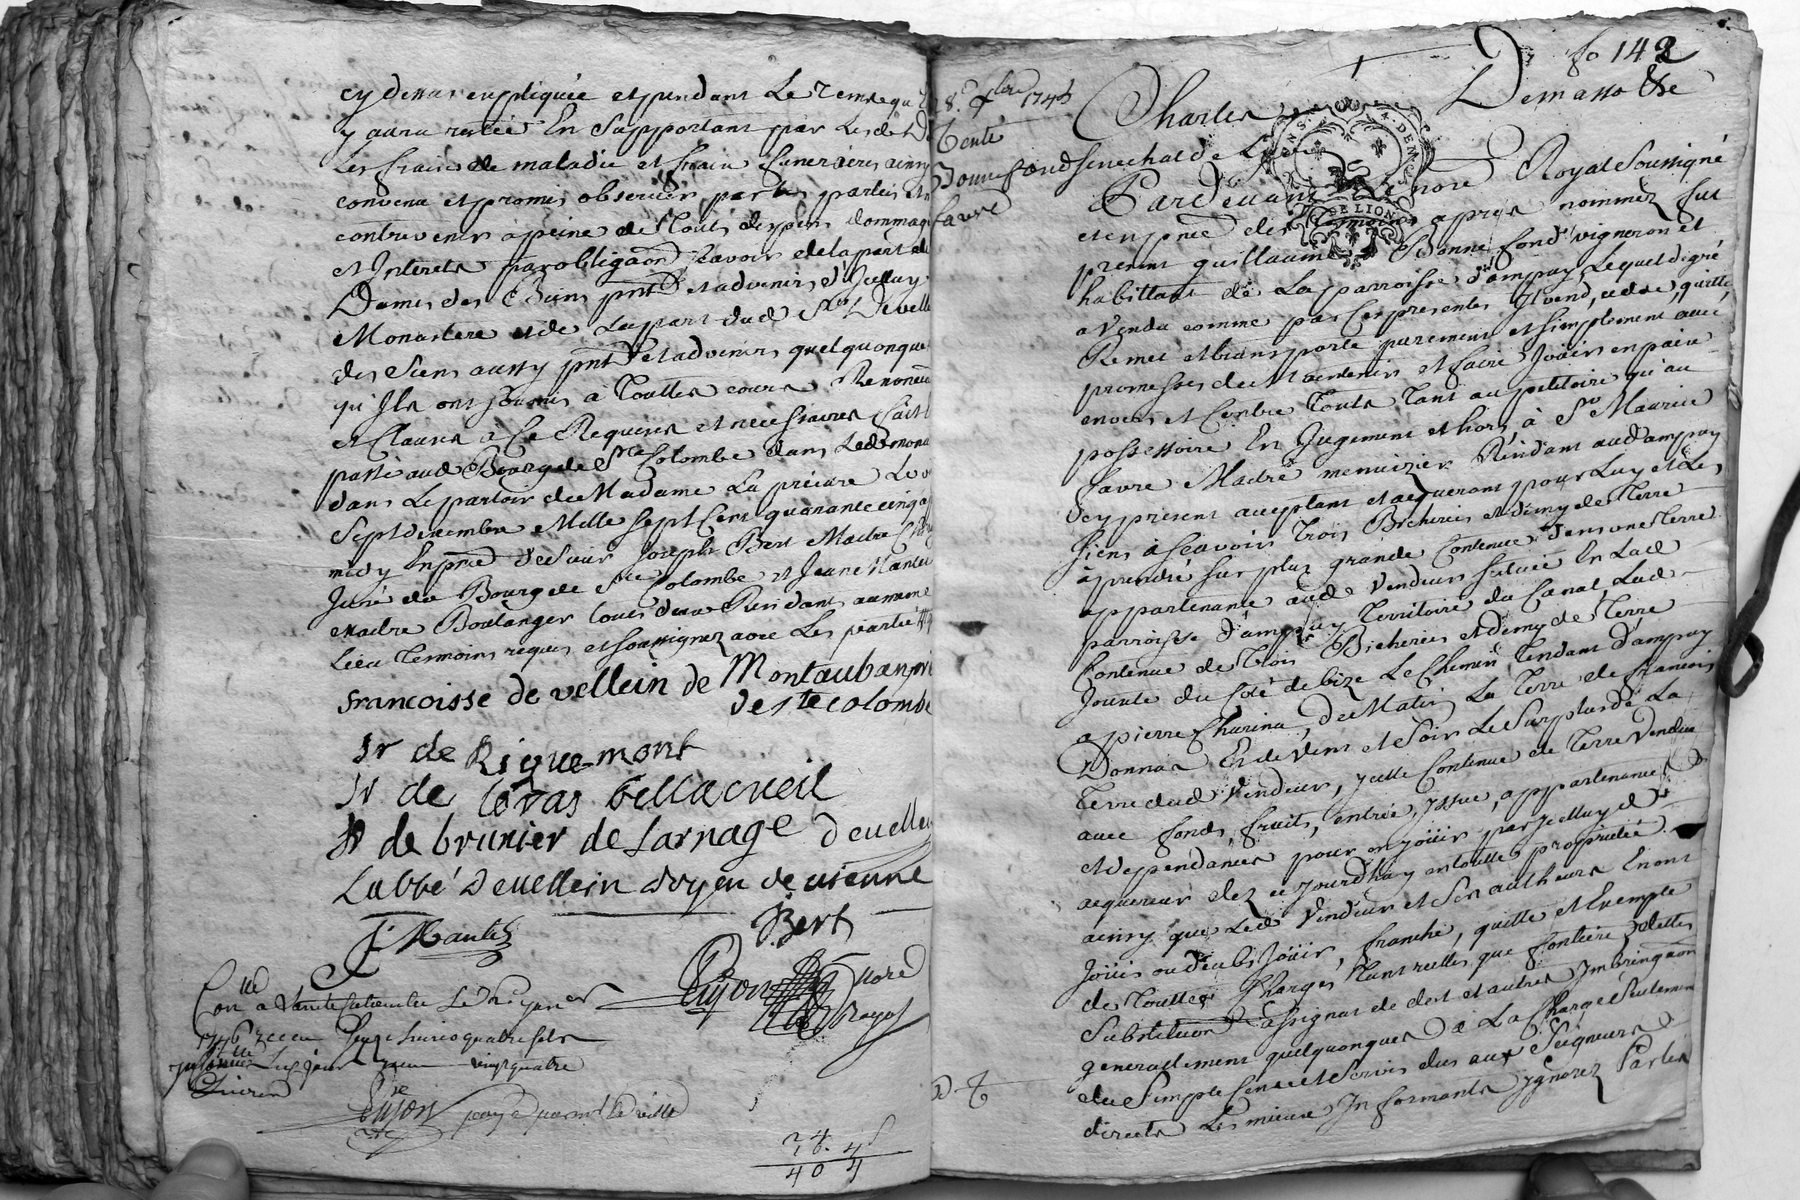 cy dessus expliquée et pendant le temps qu'
y aura restée En supportant par lesd
les fraix de maladie et fraix funeraires ainsy
convenu et promis observer par les parties et n
contrevenir à peine de tous depens dommag
et Interets par obligaõn sçavoir de la part de
Dames des Biens pnts et advenirs d'Jcelluy
Monastere et de la part dud Sr Devell
des Siens aussy pnts et advenirs quelquonque
qu'Jls ont soumis à touttes cours Renonceu
et Clauses à ce Requises et necessaires fait
passé aud Bourg de Ste Colombe dans led mona
dans le parloir de Madame la prieure le
sept decembre Mille sept Cent quarante cinq a
midy En pnce de Sieur Joseph Bert Maitre
Juré du Bourg de Ste Colombe et Jean Nantes
maitre Boulanger tous deux Residants au meme
lieu temoins requis et soussignez avec les parties
francoisse de vellein de Montauban pri
de ste colombe
sr de Riquemont
sr de Coras bellacueil
sr de brunier de Larnage devellei
Labbé Devellein doyen de vienne
J Nantes
Bert
Guyon Nore Royal
Conlle a Sainte Colombe le
1746 receu livres quatre sols
vingt quatre
Guyon
24. 4
40 4
fo 142
8e xbre 1745
Vente
Bonnefond
favre
Charles Demasso &c
Senechal de Lyon
Pardevant le nore Royal Soussigné
et en pnce des temoins apres nommez fut
present guillaume Bonnefond vigneron et
habittant de la parroisse d'ampuy, Lequel de gré
a Vendu comme par Ces presentes Jl vend, cede, quitte,
Remet et transporte purement et simplement avec
promesses de Maintenir et faire Joüir en paix
envers et Contre Touts Tant au petitoire qu'au
possessoire En Jugement et hors à Sr Maurice
favre Maitre menuizier Residant aud ampuy
cy present acceptant et acquerant pour Luy et les
siens à sçavoir trois Bicherées et demy de Terre
à prendre sur plus grande Contenue d'ens une terre
appartenante aud Vendeur située En Lad
parroisse d'ampuy Territoire du Canal, Lad
Contenue de trois Bicherées et demy de Terre
Jointe du Coté de bize Le Chemin tendant d'ampuy
a pierre Charina, de Matin La Terre de francois
Donnas Et de Vent et Soir Le Surplus de La
Terre dud Vendeur, ycelle Contenue de terre Vendue
avec fonds fruits, entrée, yssue, appartenances
et dependances pour en joüir par Jcelluy d
acquereur dez ce jourdhuy en touttes proprieté
ainsy que Led Vendeur et ses autheurs En ont
Joüis ou deubs Joüir, franche, quitte et Exempte
de touttes Charges tant reelles que fontiere, debtes
Substitution assignat de dot et autres Jmbringaõn
generallement quelquonques à La Charge Seulement
du Simple Cens et Servis dus aux Seigneurs
directs Les mieux Jnformants ygnorez Par Les